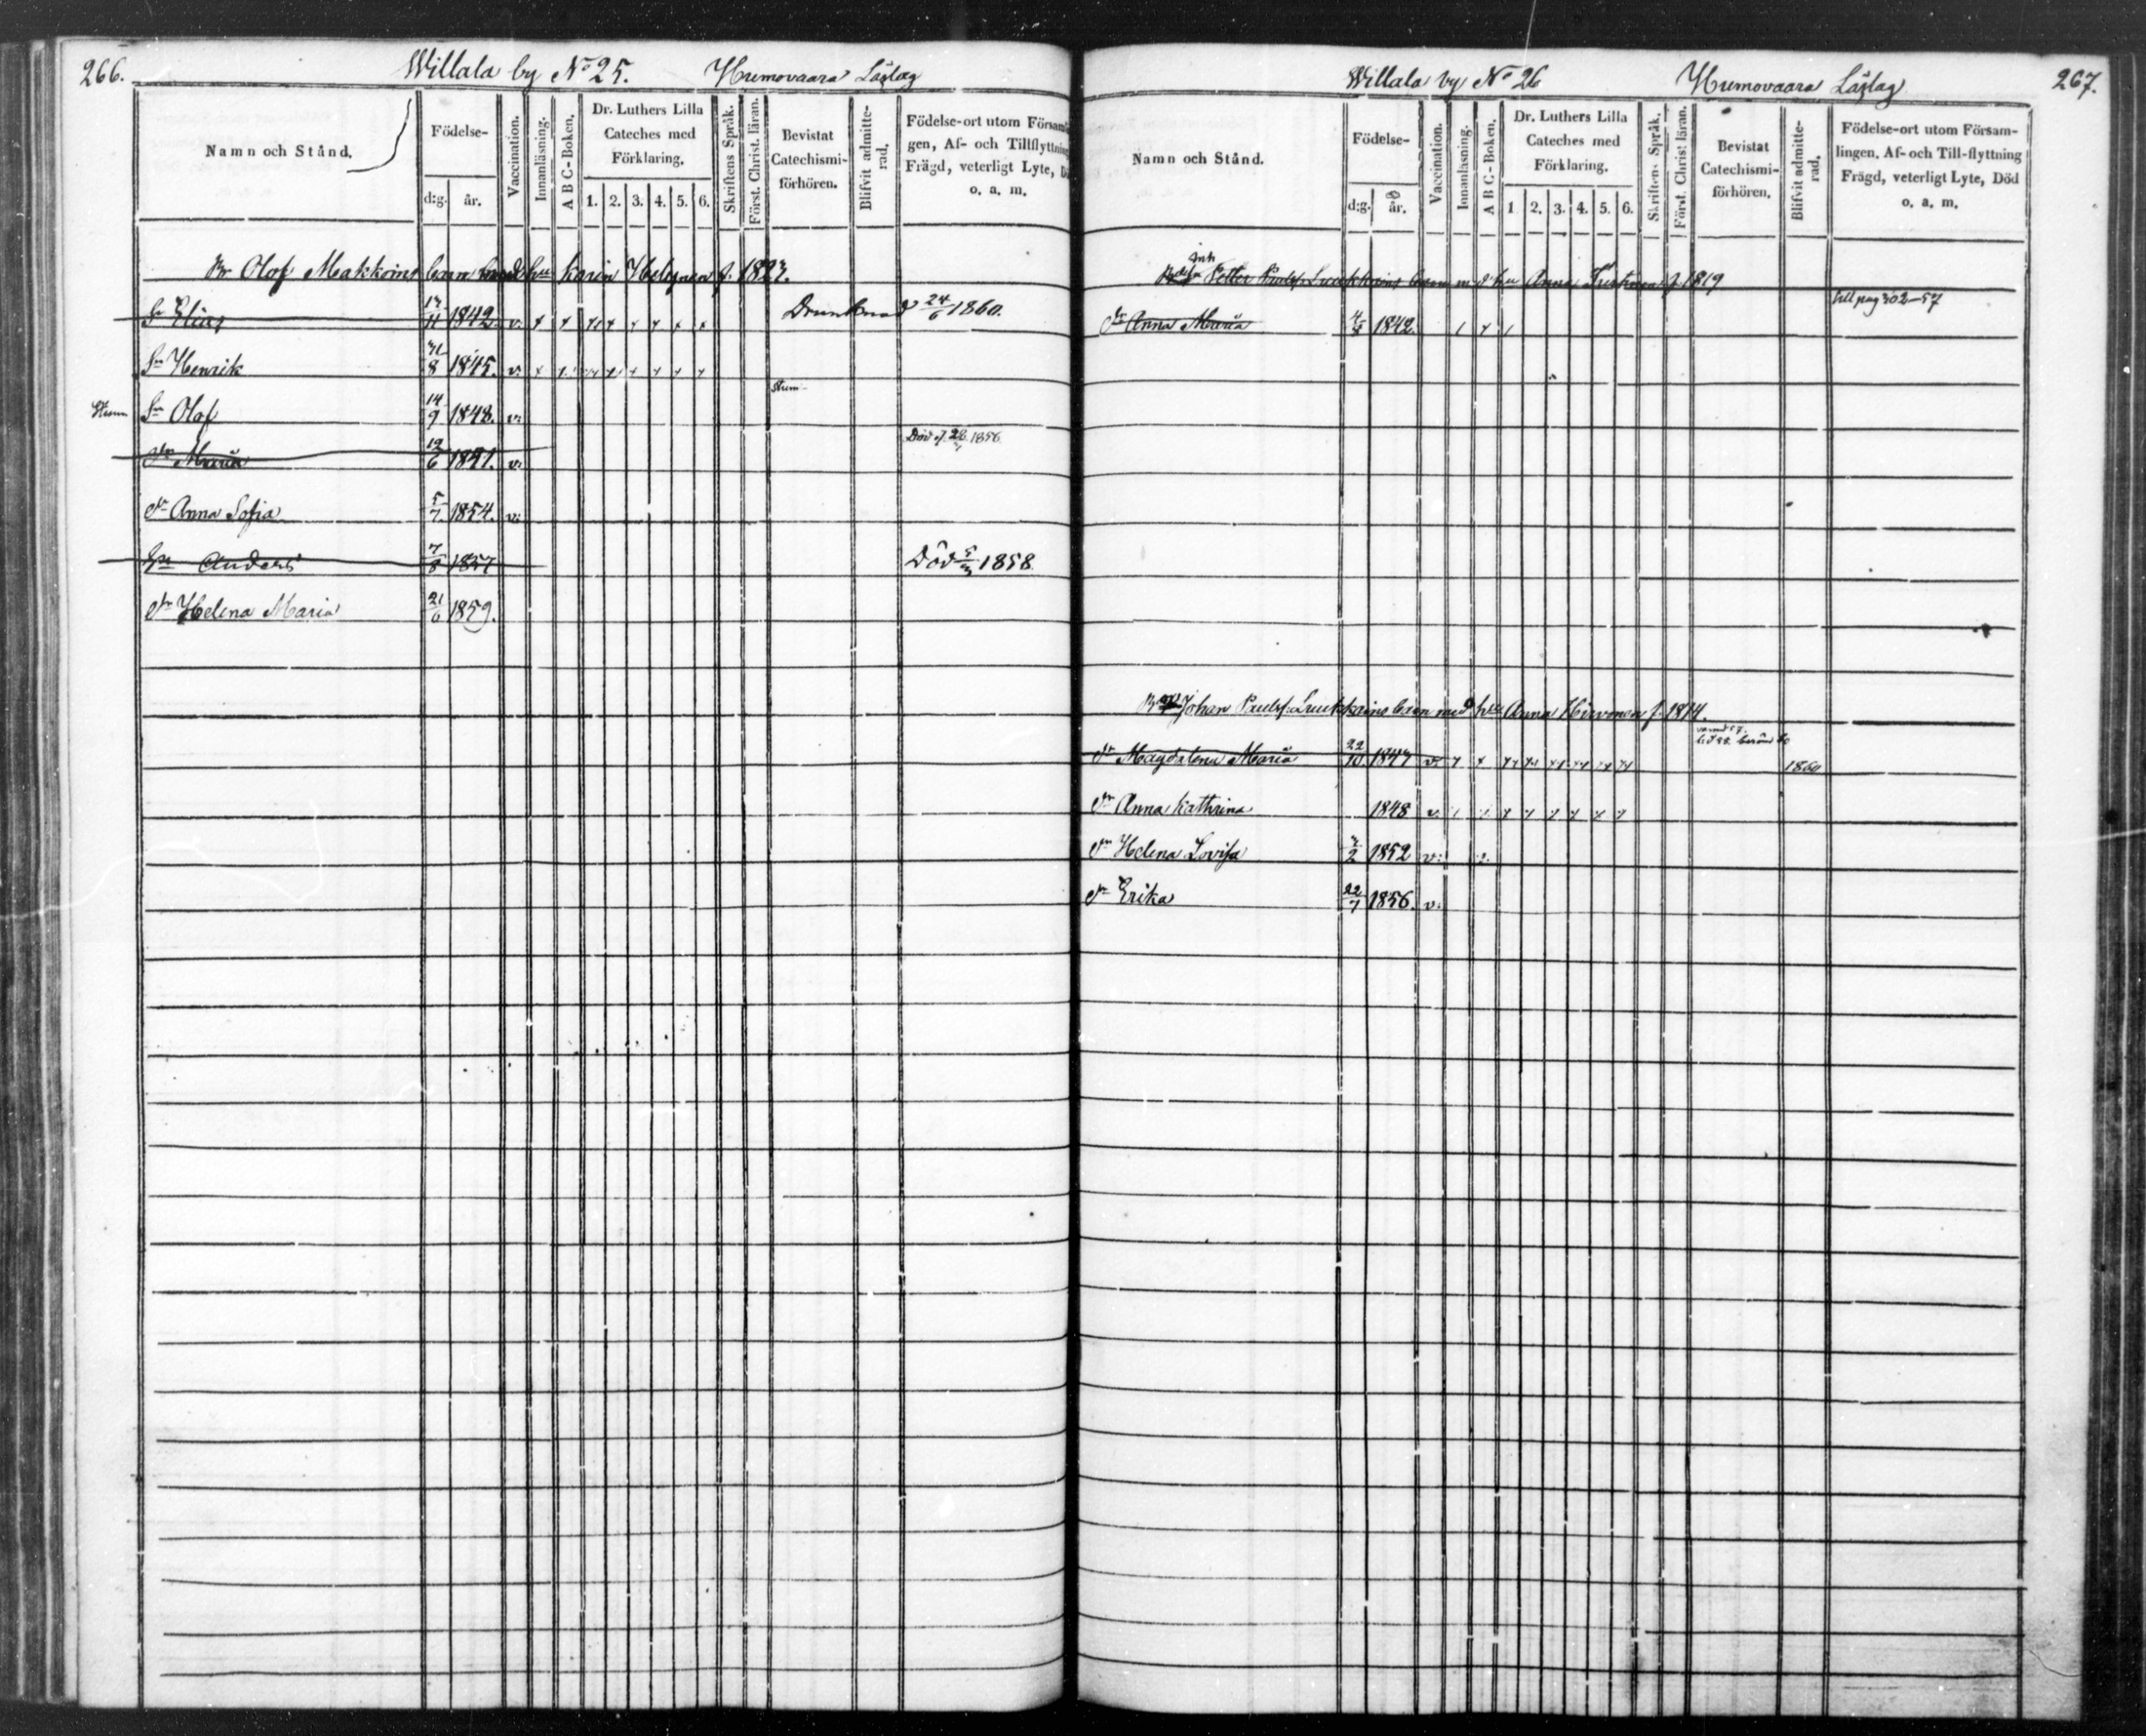 266.
Willala by No 25. Humovaara Läslag
Namn och Stånd.
Födelse-
d:g. år.
Vaccination.
Innanläsning.
A B C-Boken.
Dr. Luthers Lilla
Cateches med
Förklaring.
1. 2. 3. 4. 5. 6.
Skriftens Språk.
Först. Christ. läran.
Bevistat
Catechismi-
förhören.
Blifvit admitte-
rad.
Födelse-ort utom Försam
gen, Af- och Tillflyttning
Frägd, veterligt Lyte, D
o. a. m.
Olof Makkoins barn med hu Karin f. 1822.
Sn Elias 1842. v. Drunknad 24/6 1860.
Sn Henrik 8 1845. v.
Sn Olof 14/9 1848. v.
Dr Maria 12/6 1851. v. Död 1856
Dr Anna Sofia 5/7. 1854. v.
Sn Anders 7/8 1857 Död 1858.
Dr Helena Maria 21/6 1859.
267.
Willala by No 26 Humovaara Läslag
Namn och Stånd.
Födelse-
d:g. år.
Vaccination.
Innanläsning.
A B C-Boken.
Dr. Luthers Lilla
Cateches med
Förklaring.
1 2. 3. 4. 5. 6.
Skriftens Språk.
Först. Christ läran.
Bevistat
Catechismi-
förhören.
Blifvit admitte-
rad.
Födelse-ort utom Försam-
lingen, Af-och Till-flyttning
Frägd, veterligt Lyte, Död
o. a. m.
Petter Paulss. Luukkoins barn m d hu Anna f 1819
till pag 302-57
Dr Anna Maria 1842.
Johan Paulss. Luukkoins barn med hu Anna Hirvonen f. 1814.
Dr Magdalena Maria 22/10 1847 v. 1860
Dr Anna Kathrina 1848 v.
Dr Helena Lovisa 1852 v.
Dr Erika 22/7 1856. v.